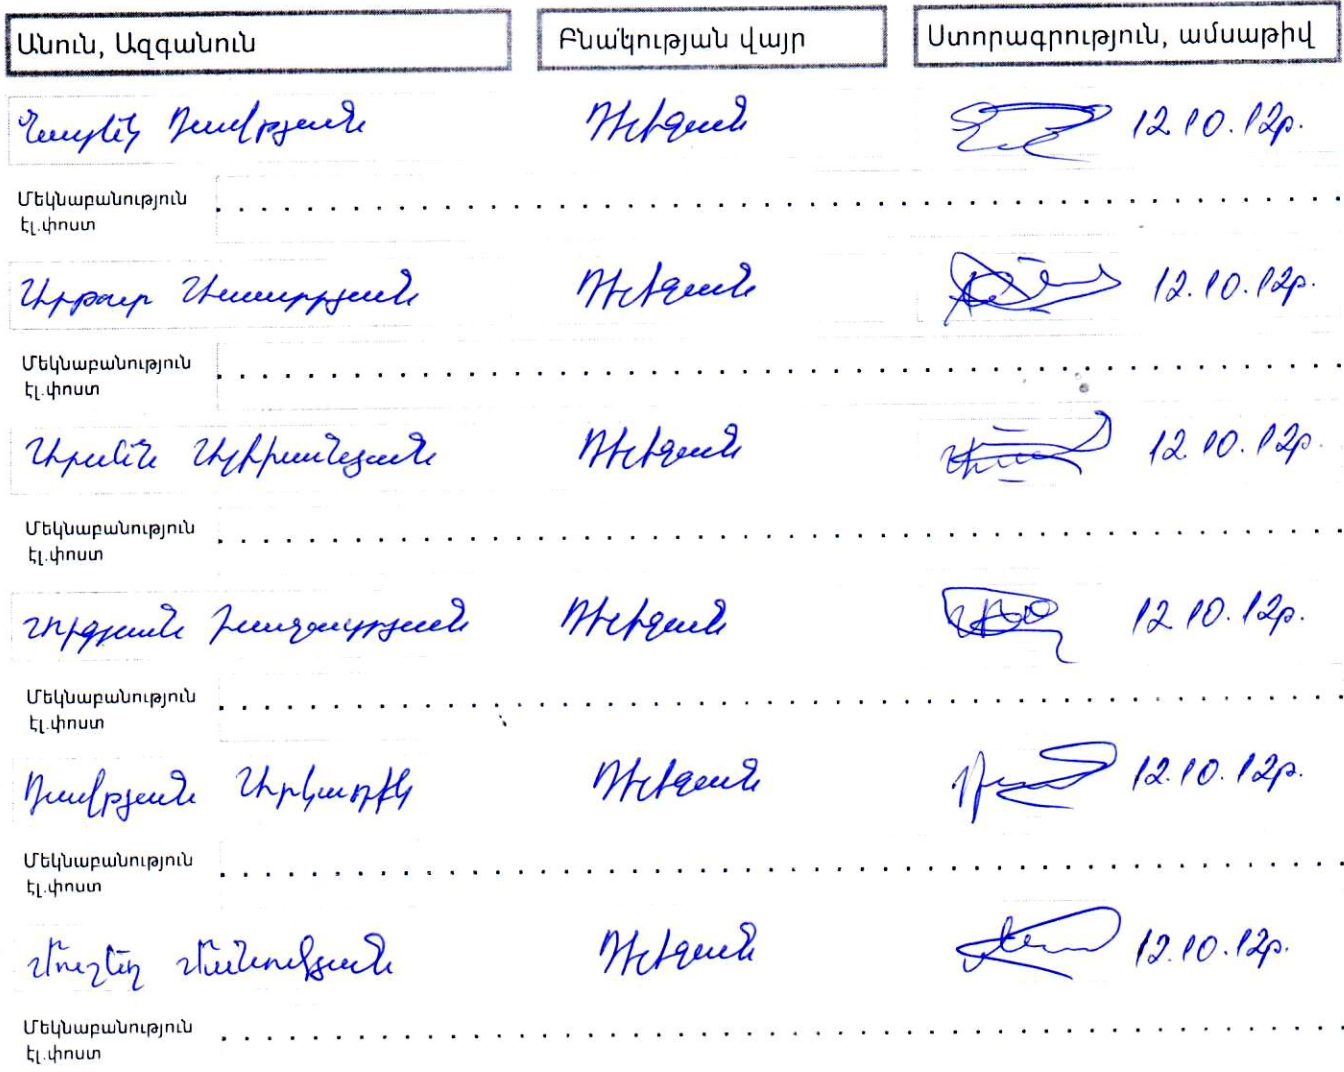 Անուն, Ազգանուն Բնակության վայր Ստորագրություն, ամսաթիվ
Նարեկ Դավթյան Դիլիջան 12.10.12թ.
Մեկնաբանություն
էլ.փոստ
Արթուր Դիլիջան 12.10.12թ.
Մեկնաբանություն
էլ.փոստ
Արմեն Ալիխանյան Դիլիջան 12.10.12թ.
Մեկնաբանություն
էլ.փոստ
Դիլիջան 12.10.12թ.
Մեկնաբանություն
էլ.փոստ
Դավթյան Դիլիջան 12.10.12թ.
Մեկնաբանություն
էլ.փոստ
Մուշեղ Մանուկյան Դիլիջան 12.10.12թ.
Մեկնաբանություն
էլ.փոստ